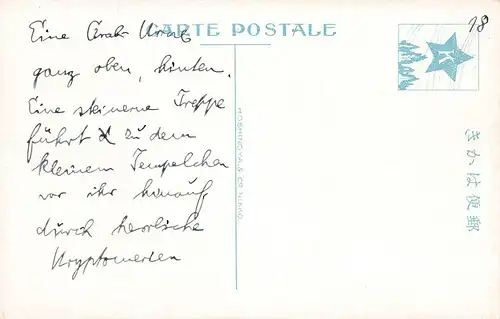 CARTE POSTALE
18
Eine Grab Urne
ganz oben, hinten.
Eine steinerne Treppe
führt zu dem
kleinen Tempelchen
vor ihr hinauf
durch herrliche
Kryptomerien
きかは便郵